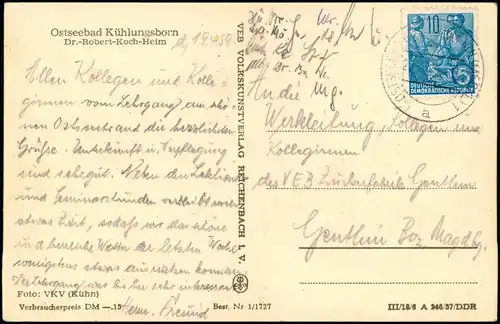 Ostseebad Kühlungsborn
Dr.-Robert-Koch-Heim
19.4.59
Allen Kollegen und Kolle-
ginnen vom Lehrgang am schö-
nen Ostseestrand die herzlichsten
Grüße. Unterkunft u. Verpflegung
sind sehr gut. Neben den Lektionen
und Seminarstunden verbleibt noch
etwas Zeit, sodaß wir das schöne
u. herrliche Wetter der letzten Woche
wenigstens etwas ausnutzen konnten.
Der Lehrgang was ich sehr interessant
Herm. Freund
Foto: VKV (Kühn)
Verbraucherpreis DM —.15
Best. Nr 1/1727
VEB VOLKSKUNSTVERLAG REICHENBACH I. V.
10
DEUTSCHE
DEMOKRATISCHE REPUBLIK
a
An die
Werkleitung, Kollegen und
Kolleginnen
des VEB Zuckerfabrik Genthin
Genthin Bez Magdbg.
III/18/6 A 246/57/DDR